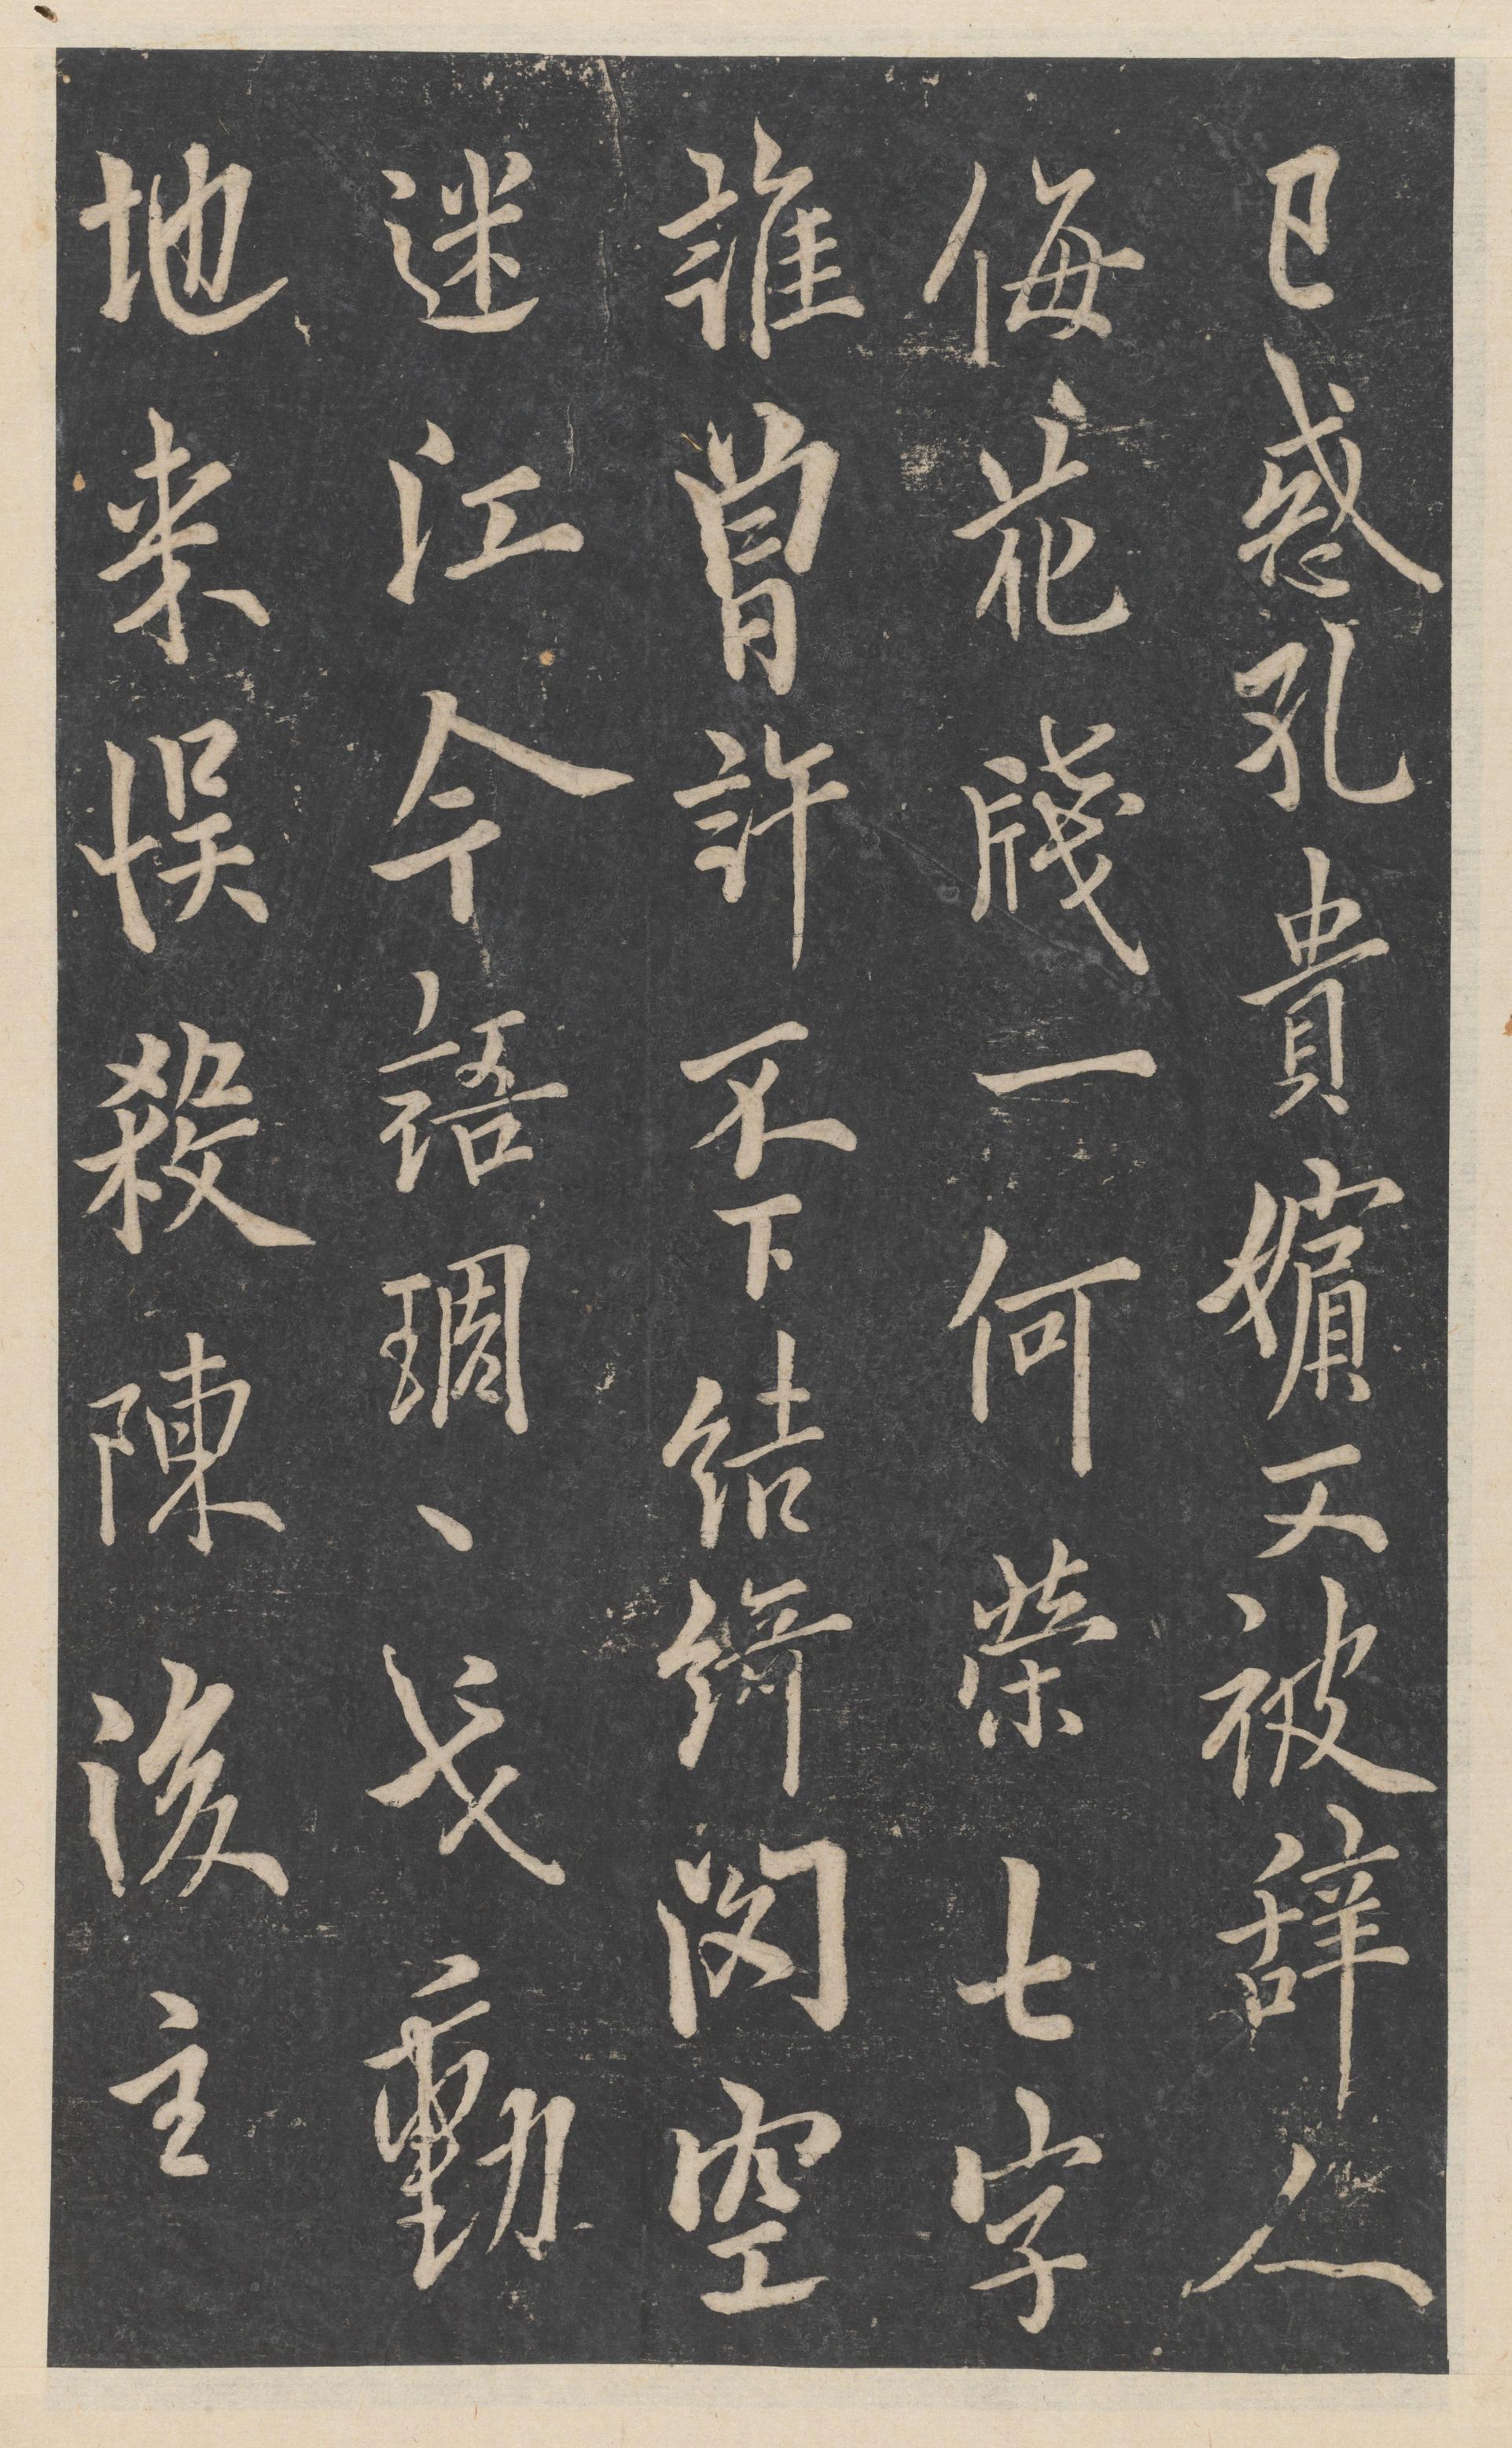 已惑孔貴嬪又被辞人
侮花牋一何榮七字
誰曾許不下結綺閣空
迷江令語琱、戈動
地来悮殺陳後主